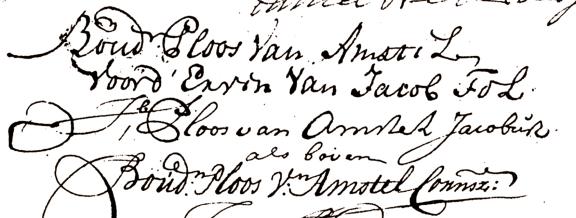 Boudn Ploos Van Amstel
Voord Erven Van Jacob Fol
Ploos van Amstel Jacobusz
als boven
Boudn Ploos Vn Amstel Cornsz: